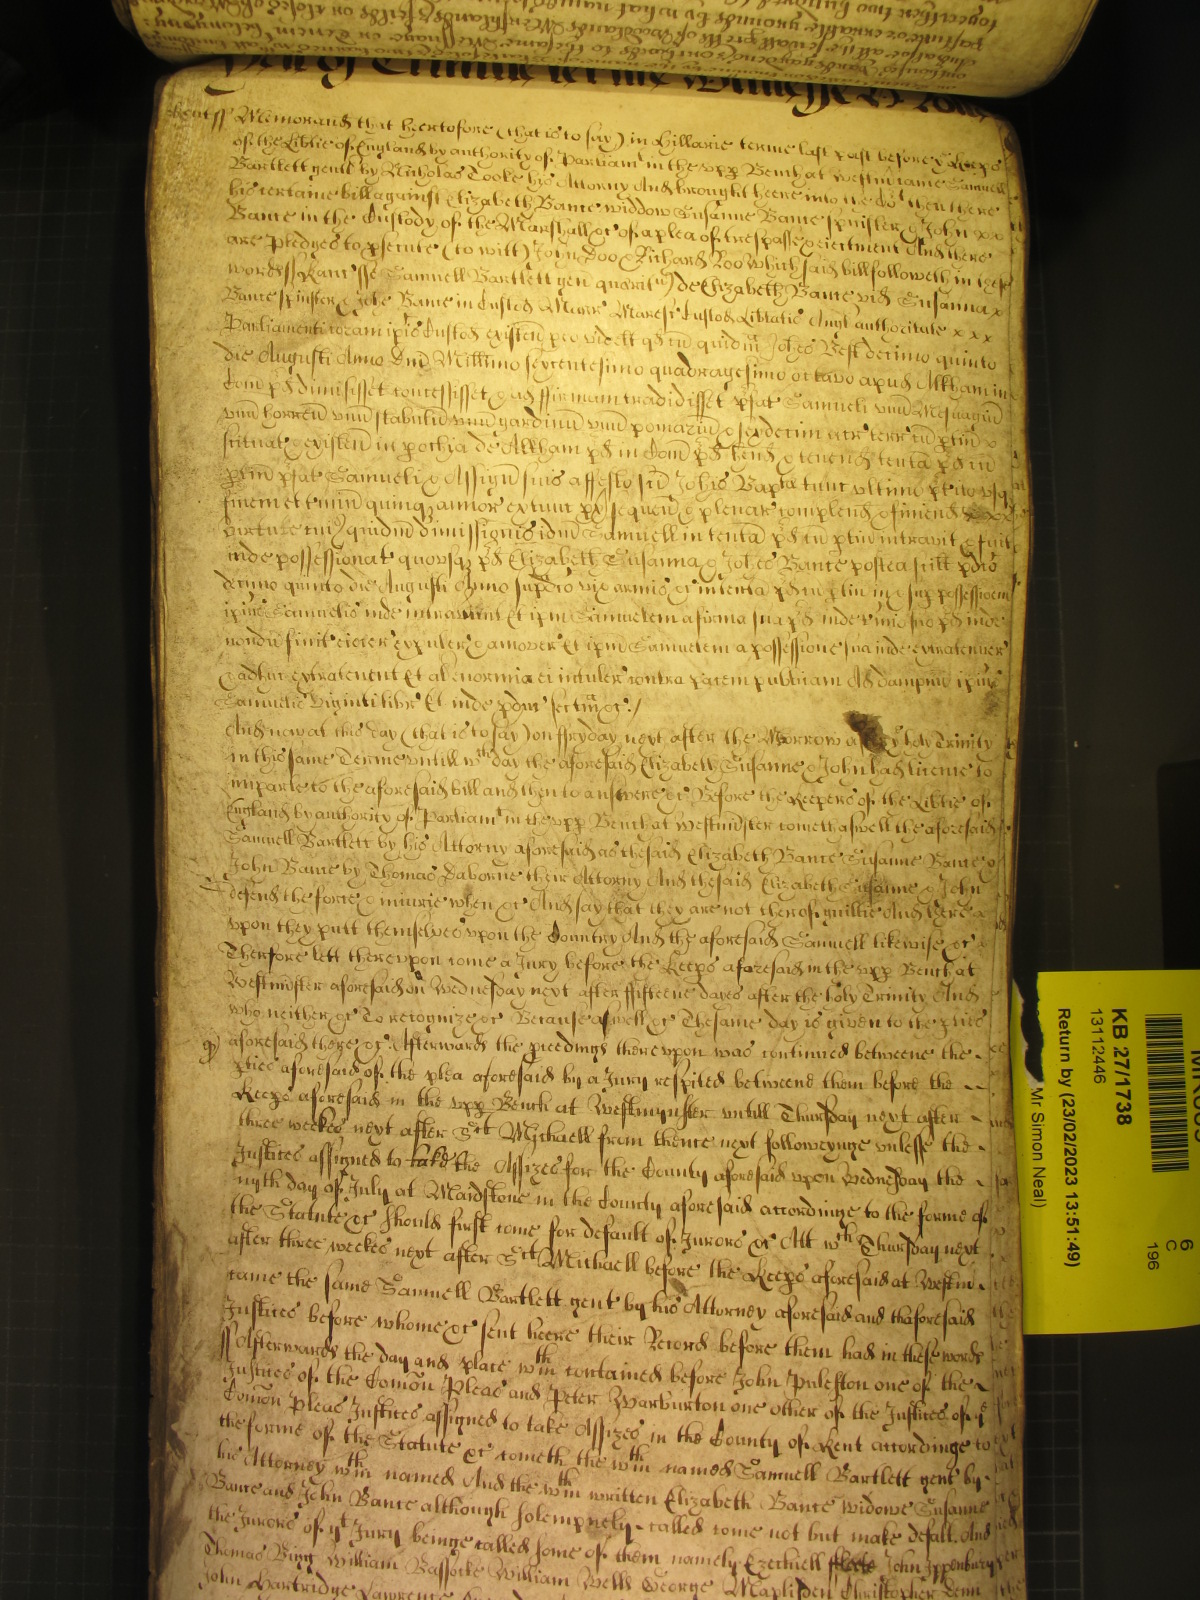 Kent ss Memorand that heertofore (that is to say) in Hillarie terme last past before ye Keeps
of the Libtie of England by authority of Parliamt in the upp Bench at Westmr came Samuell
Bartlett gent by Nicholas Tooke his Attorny And brought heere into the Cot then there
his certaine bill against Elizabeth Bance widdow Susanne Bance spinster & John
Bance in the Custody of the Marshall &c of a plea of trespasse & eiectment And there
are pledges to psecute (to witt) John Doo & Richard Roo which said bill followeth in these
words ss Kanc sse Samuell Bartlett gen querit de Elizabeth Bance vid Susanna
Bance spinster & Johe Bance in Custod Marr Maresc Custod Libtatis Angl authoritate x x x
Parliamenti coram ipis Custod existen p eo videlt qd cu quidm Johes Best decimo quinto
die Augusti Anno Dni Millimo sexcentesimo quadragesimo octavo apud Alkham in
Com pd dimisisset concessisset & ad firmam tradidisset pfat Samueli unu Mesuagiu
unu horreu unu stabulu unu gardinu unu pomariu & sexdecim acr terr cu ptin
scituat & existen in pochia de Alkham pd in Com pd hend & tenend tenta pd cu
ptin pfat Samueli & Assign suis a ffesto Sci Johis Bapte tunc ultimo pterito usq
finem et tminu quinq annor extunc px sequen & plenar complend & finiend
virtute cui quidm dimissionis idm Samuell in tenta pd cu ptin intravit & fuit
inde possessionat quousq pd Elizabeth Susanna & Johes Bance postea scilt pdco
decimo quinto die Augusti Anno supdco vi & armis &c in tenta pd cu ptin in & sup possessionem
ipius Samuelis inde intraverunt Et ipm Samuelem a firma sua pd inde tmio suo pd inde
nondu finit eiecer expuler & amover Et ipm Samuelem a possessione sua inde extratenuer
& adhuc extratenent Et al enormia ei intuler contra pacem publicam Ad dampnu ipius
Samuelis viginti libr Et inde pduc sectm &c /
And now at this day (that is to say) on ffryday next after the Morrow of the holy Trinity
in this same Terme untill wch day the aforesaid Elizabeth Susanne & John had licence to
imparle to the aforesaid bill and then to answere &c Before the Keepers of the Libtie of
England by authority of Parliamt in the upp Bench at Westminster cometh aswell the aforesaid
Samuell Bartlett by his Attorny aforesaid as the said Elizabeth Bance Susanne Bance &
John Bance by Thomas Daborne their Attorny And the said Elizabeth Susanne & John
defend the force & iniurie when &c And say that they are not therof guiltie And there
upon they putt themselves upon the Country And the aforesaid Samuell likewise &c
Therfore lett thereupon come a Jury before the Keeps aforesaid in the upp Bench at
Westminster aforesaid on Wednesday next after ffifteene dayes after the holy Trinity And
who neither &c To recognize &c Because aswell &c The same day is given to the pties
aforesaid there &c Afterwards the pceedings thereupon was continued betweene the
pties aforesaid of the plea aforesaid by a Jury respited betweene them before the
Keeps aforesaid in the upp Bench at Westminster untill Thursday next after
three weekes next after Sct Michaell from thence next followeynge unlesse the
Justices assigned to take the Assizes for the County aforesaid upon Wednesday the
nyth day of July at Maidstone in the County aforesaid accordinge to the forme of
the Statute &c should first come for default of Jurors &c Att wch Thursday next
after three weekes next after Sct Michaell before the Keeps aforesaid at Westm
came the same Samuell Bartlett gent by his Attorney aforesaid and thaforesaid
Justices before whome &c sent heere their Record before them had in these words
ss Afterwards the day and place wthin contained before John Puleston one of the
Justices of the Comon Pleas and Peter Warburton one other of the Justices of ye
Comon Pleas Justices assigned to take Assizes in the County of Kent accordinge to
the forme of the Statute &c cometh the wthin named Samuell Bartlett gent by
his Attorney wthin named And the wthin written Elizabeth Bance widowe Susanne
Bance and John Bance although solempnely called come not but make defalt And
the Jurors of yt Jury beinge called some of them namely Ezechiell John
Thomas Bing William Bassocke William Wells George Maplisden Christopher Denn
John Hartridge Lawrence
KB 27/1738
13112446
Return by (23/02/2023 13:51:49)
Mr Simon Neal)
6
C
196